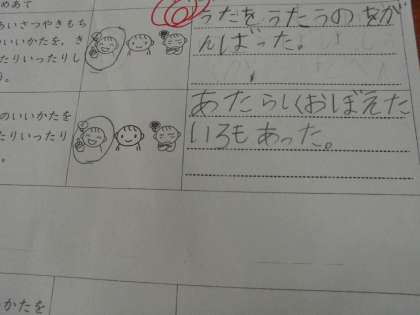 めあて
あいさつやきもち
いいかたを、き
たりいったりし
。
うたをうたうのをが
んばった。
のいいかたを
たりいったり
。
あたらしくおぼえた
いろもあった。
かたを